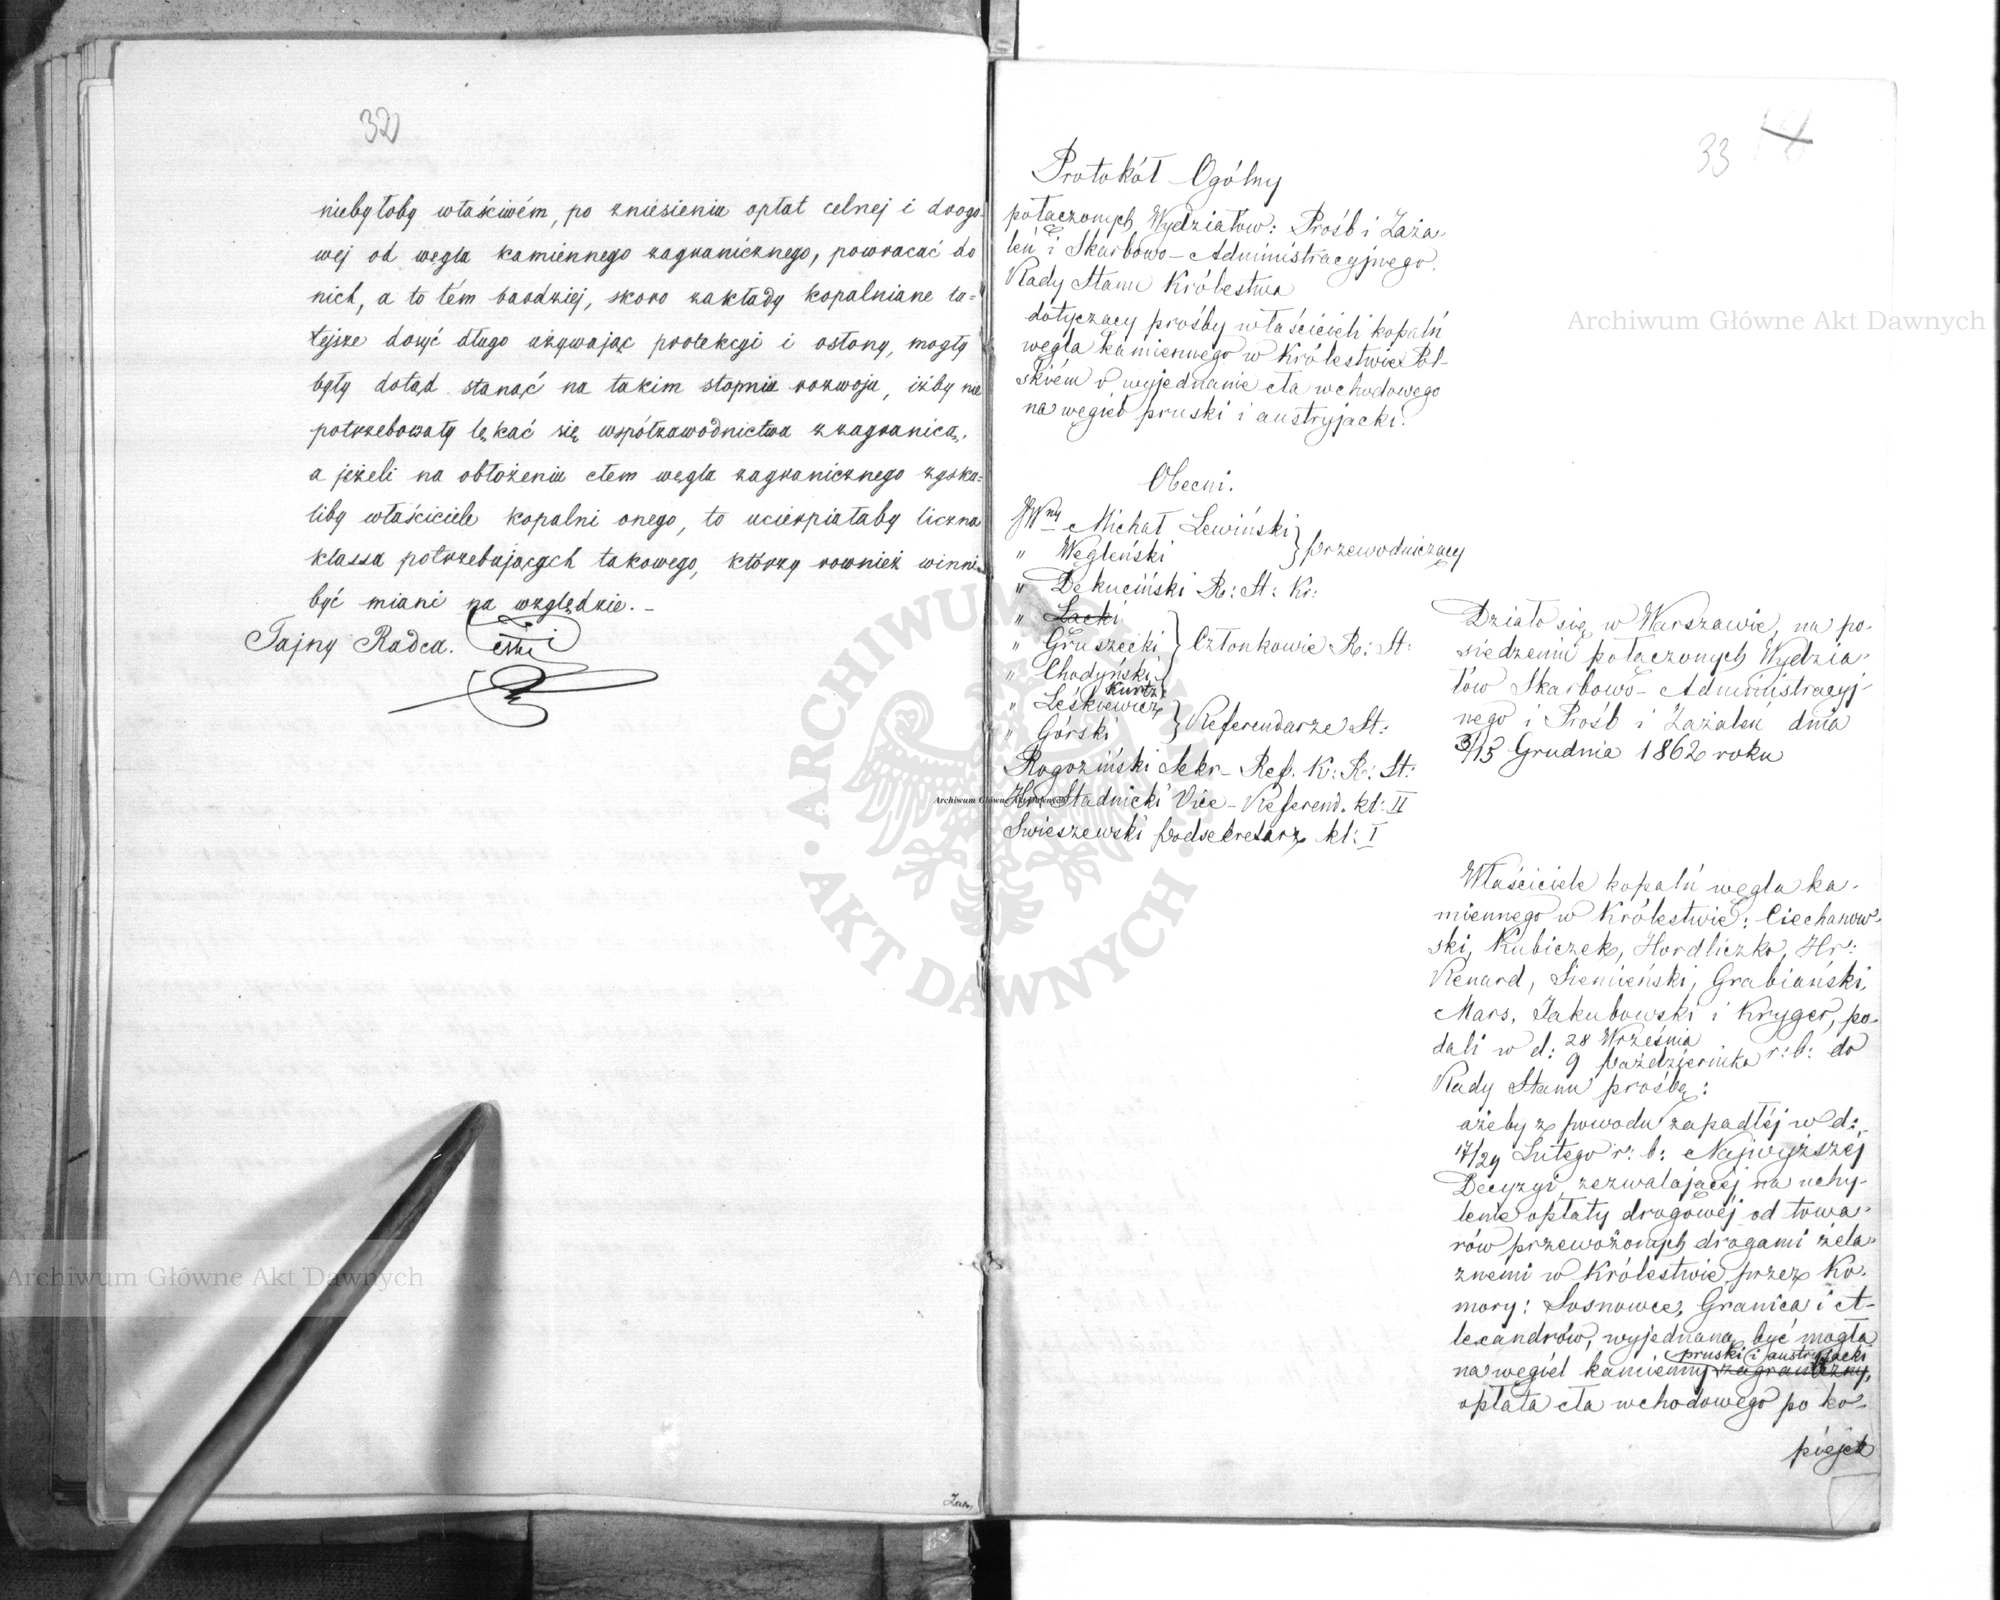 32
niebyłoby właściwém, po zniesieniu opłat celnej i drogo-
wej od węgla kamiennego zagranicznego, powracać do
nich, a to tém bardziej, skoro zakłady kopalniane tu=
tejsze dosyć długo używając protekcyi i osłony, mogły
były dotąd stanąć na takim stopniu rozwoju, iżby nie
potrzebowały lękać się współzawodnictwa z zagranicą,
a jeżeli na obłożeniu cłem węgla zagranicznego zyska=
liby właściciele kopalni onego, to ucierpiałaby liczna
klassa potrzebujących takowego, którzy rownież winni
być miani na względzie. _
Tajny Radca.
33 18
Protokół Ogólny
połączonych Wydziałów: Prośb i Zaża-
leń i Skarbowo-Administracyjnego
Rady Stanu Królestwa
dotyczący prośby właścicieli kopalń
węgla kamiennego w Królestwie Pol-
skiém o wyjednanie cła wchodowego
na węgiel pruski i austryjacki.
Obecni.
JWny Michał Lewiński
" Węgleński } przewodniczący
" Dekuciński R: St: Kr:
" Łacki
" Gruszecki } Członkowie R: St:
" Chodyński
Kurtz
" Leśkiewicz
" Górski } Referendarze St:
Rogoziński Sekr- Ref. K: R: St:
Hr. Stadnicki Vice-Referend. kl: II
Swieszewski Podsekretarz kl: I
Działo się w Warszawie, na po-
siedzeniu połączonych Wydzia-
łów Skarbowo-Administracyj-
nego i Prośb i Zażaleń dnia
3/15 Grudnia 1862 roku
Właściciele kopalń węgla ka-
miennego w Królestwie: Ciechanow-
ski, Kubiczek, Hordliczko, Hr:
Renard, Siemieński, Grabiański,
Mars, Jakubowski i Kryger, po-
dali w d: 28 Września
9 Października r: b: do
Rady Stanu prośbę:
ażeby z powodu zapadłéj w d:
17/29 Lutego r: b: Najwyższéj
Decyzyi, zezwalającéj na uchy-
lenie opłaty drogowéj od towa-
rów przewożonych drogami żela-
znémi w Królestwie przez Ko-
mory: Sosnowce, Granica i A-
lexandrów, wyjednaną być mogła
pruski i austryjacki
na węgiel kamienny zagraniczny,
opłata cła wchodowego po ko-
piejek
Archiwum Główne Akt Dawnych
Archiwum Główne Akt Dawnych
Archiwum Główne Akt Dawnych
ARCHIWUM GŁÓWNE AKT DAWNYCH